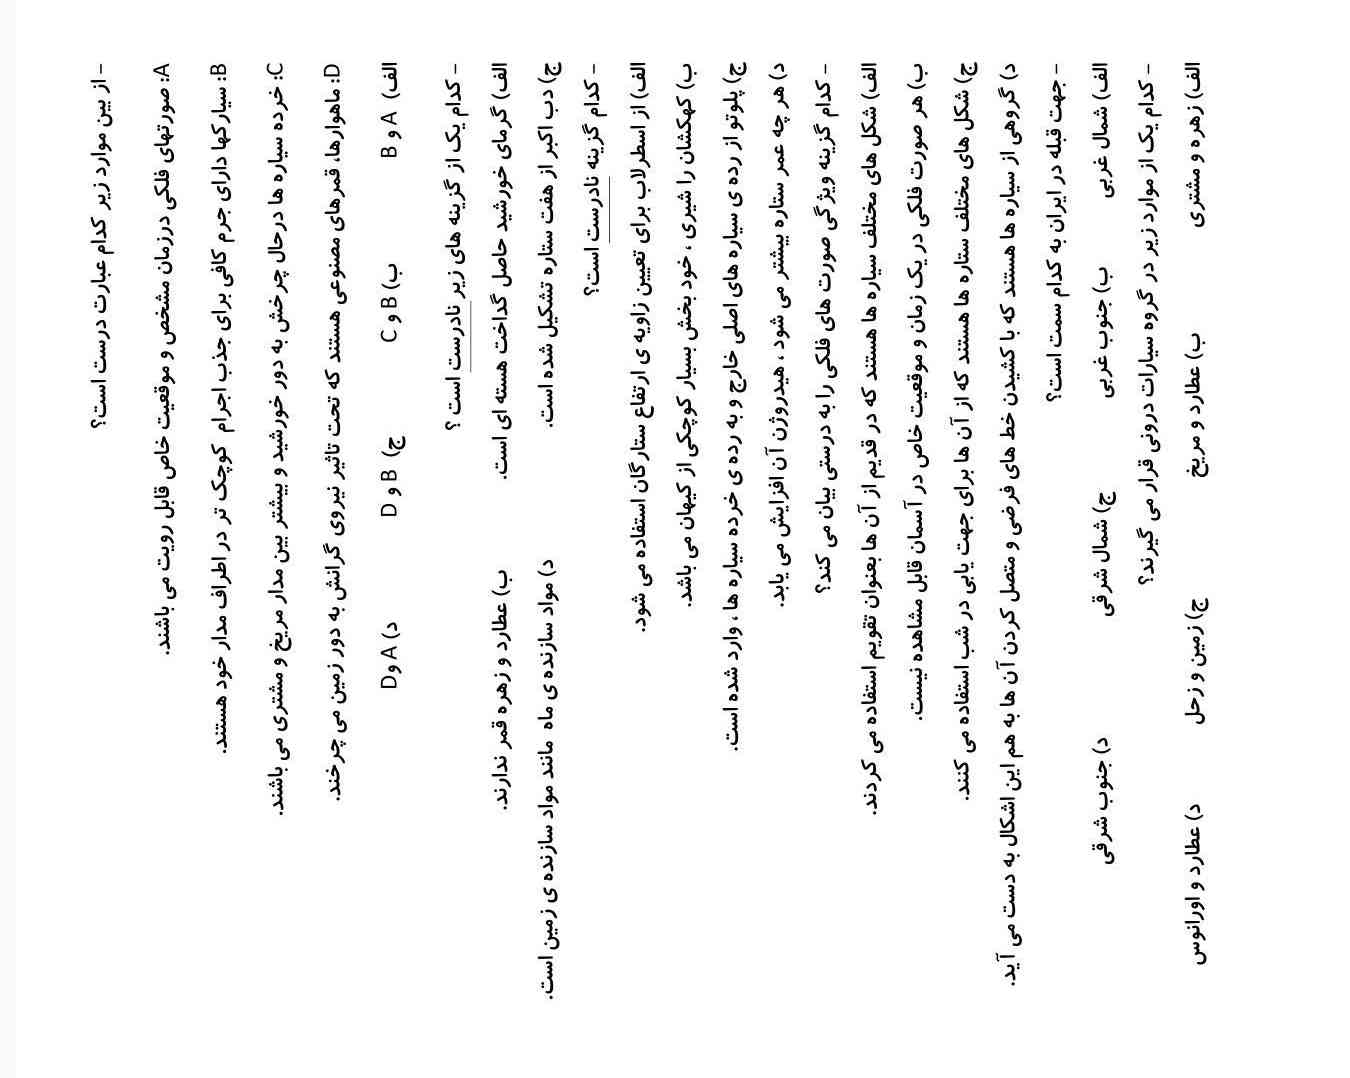 - از بین موارد زیر کدام عبارت درست است؟
A: صورتهای فلکی درزمان مشخص و موقعیت خاص قابل رویت می باشند.
B: سیارکها دارای جرم کافی برای جذب اجرام کوچک تر در اطراف مدار خود هستند.
C: خرده سیاره ها درحال چرخش به دور خورشید و بیشتر بین مدار مریخ و مشتری می باشند.
D: ماهوارها، قمرهای مصنوعی هستند که تحت تاثیر نیروی گرانش به دور زمین می چرخند.
الف) A و B ب) B و C ج) B و D د) A و D
- کدام یک از گزینه های زیر نادرست است ؟
الف) گرمای خورشید حاصل گداخت هسته ای است. ب) عطارد و زهره قمر ندارند.
ج) دب اکبر از هفت ستاره تشکیل شده است. د) مواد سازنده ی ماه مانند مواد سازنده ی زمین است.
- کدام گزینه نادرست است؟
الف) از اسطرلاب برای تعیین زاویه ی ارتفاع ستارگان استفاده می شود.
ب) کهکشان را شیری ، خود بخش بسیار کوچکی از کیهان می باشد.
ج) پلوتو از رده ی سیاره های اصلی خارج و به رده ی خرده سیاره ها ، وارد شده است.
د) هر چه عمر ستاره بیشتر می شود ، هیدروژن آن افزایش می یابد.
- کدام گزینه ویژگی صورت های فلکی را به درستی بیان می کند؟
الف) شکل های مختلف سیاره ها هستند که در قدیم از آن ها بعنوان تقویم استفاده می کردند.
ب) هر صورت فلکی در یک زمان و موقعیت خاص در آسمان قابل مشاهده نیست.
ج) شکل های مختلف ستاره ها هستند که از آن ها برای جهت یابی در شب استفاده می کنند.
د) گروهی از سیاره ها هستند که با کشیدن خط های فرضی و متصل کردن آن ها به هم این اشکال به دست می آید.
- جهت قبله در ایران به کدام سمت است؟
الف) شمال غربی ب) جنوب غربی ج) شمال شرقی د) جنوب شرقی
- کدام یک از موارد زیر در گروه سیارات درونی قرار می گیرند؟
الف) زهره و مشتری ب) عطارد و مریخ ج) زمین و زحل د) عطارد و اورانوس